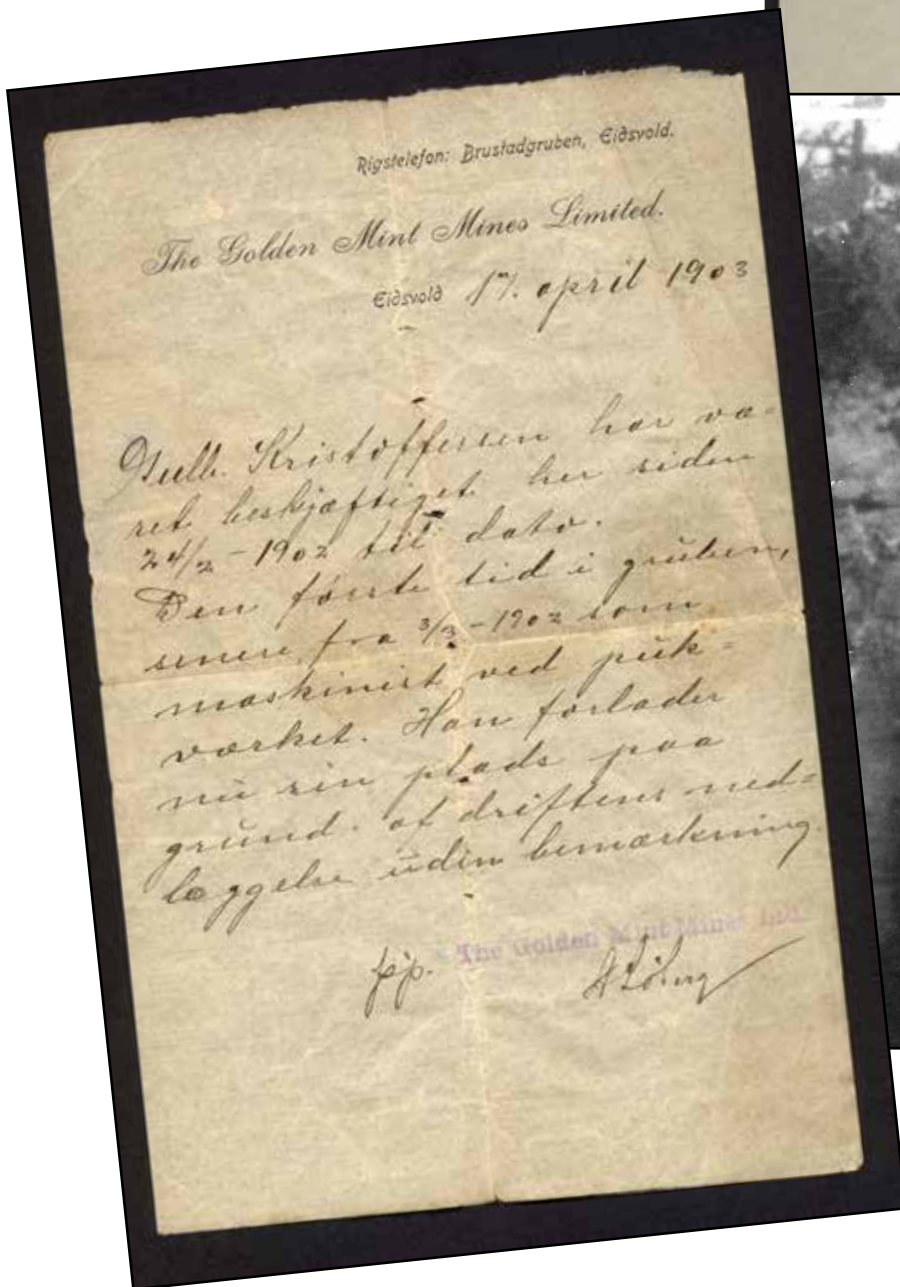 Rigstelefon: Brustadgruben, Eidsvold.
The Golden Mint Mines Limited.
Eidsvold 17. april 1903
Gulb. Kristoffersen har væ-
ret beskjæftiget her siden
24/2 - 1902 til dato.
Den første tid i gruben,
senere fra 3/3 - 1902 som
maskinist ved puk-
værket. Han forlader
nu sin plads paa
grund af driftens ned-
læggelse uden bemærkning.
pp. The Golden Mint Mines Ltd.